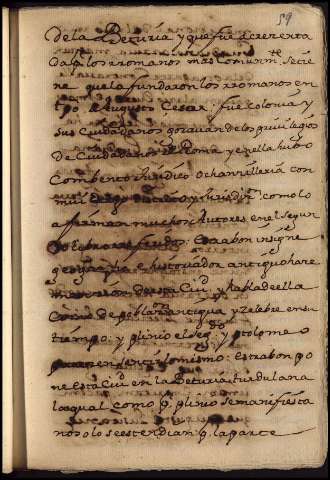 59
de la Beturia y que fue acrecenta
da por los rromanos mas comunm.te se tie
ne que la fundaron los rromanos en
tpo de Augusto Cesar, fue colonia y
sus ciudadanos gozauan de los priuilegios
de ciudadanos de Roma y en ella hubo
combento Juridico o chanzilleria con
como lo
afirman muchos Autores en el segun
do insigne
geografo e historiador antiquo haze
menzion desta Ciu.d y habla de ella
como de poblazon antigua y zelebre en su
tiempo: y plinio el seg.do y ptolomeo
lo mismo: estrabon po
ne esta Ciu.d en la Beturia turdulana
la qual como p.r plinio se manifiesta
no solo se estendia p.r la parte